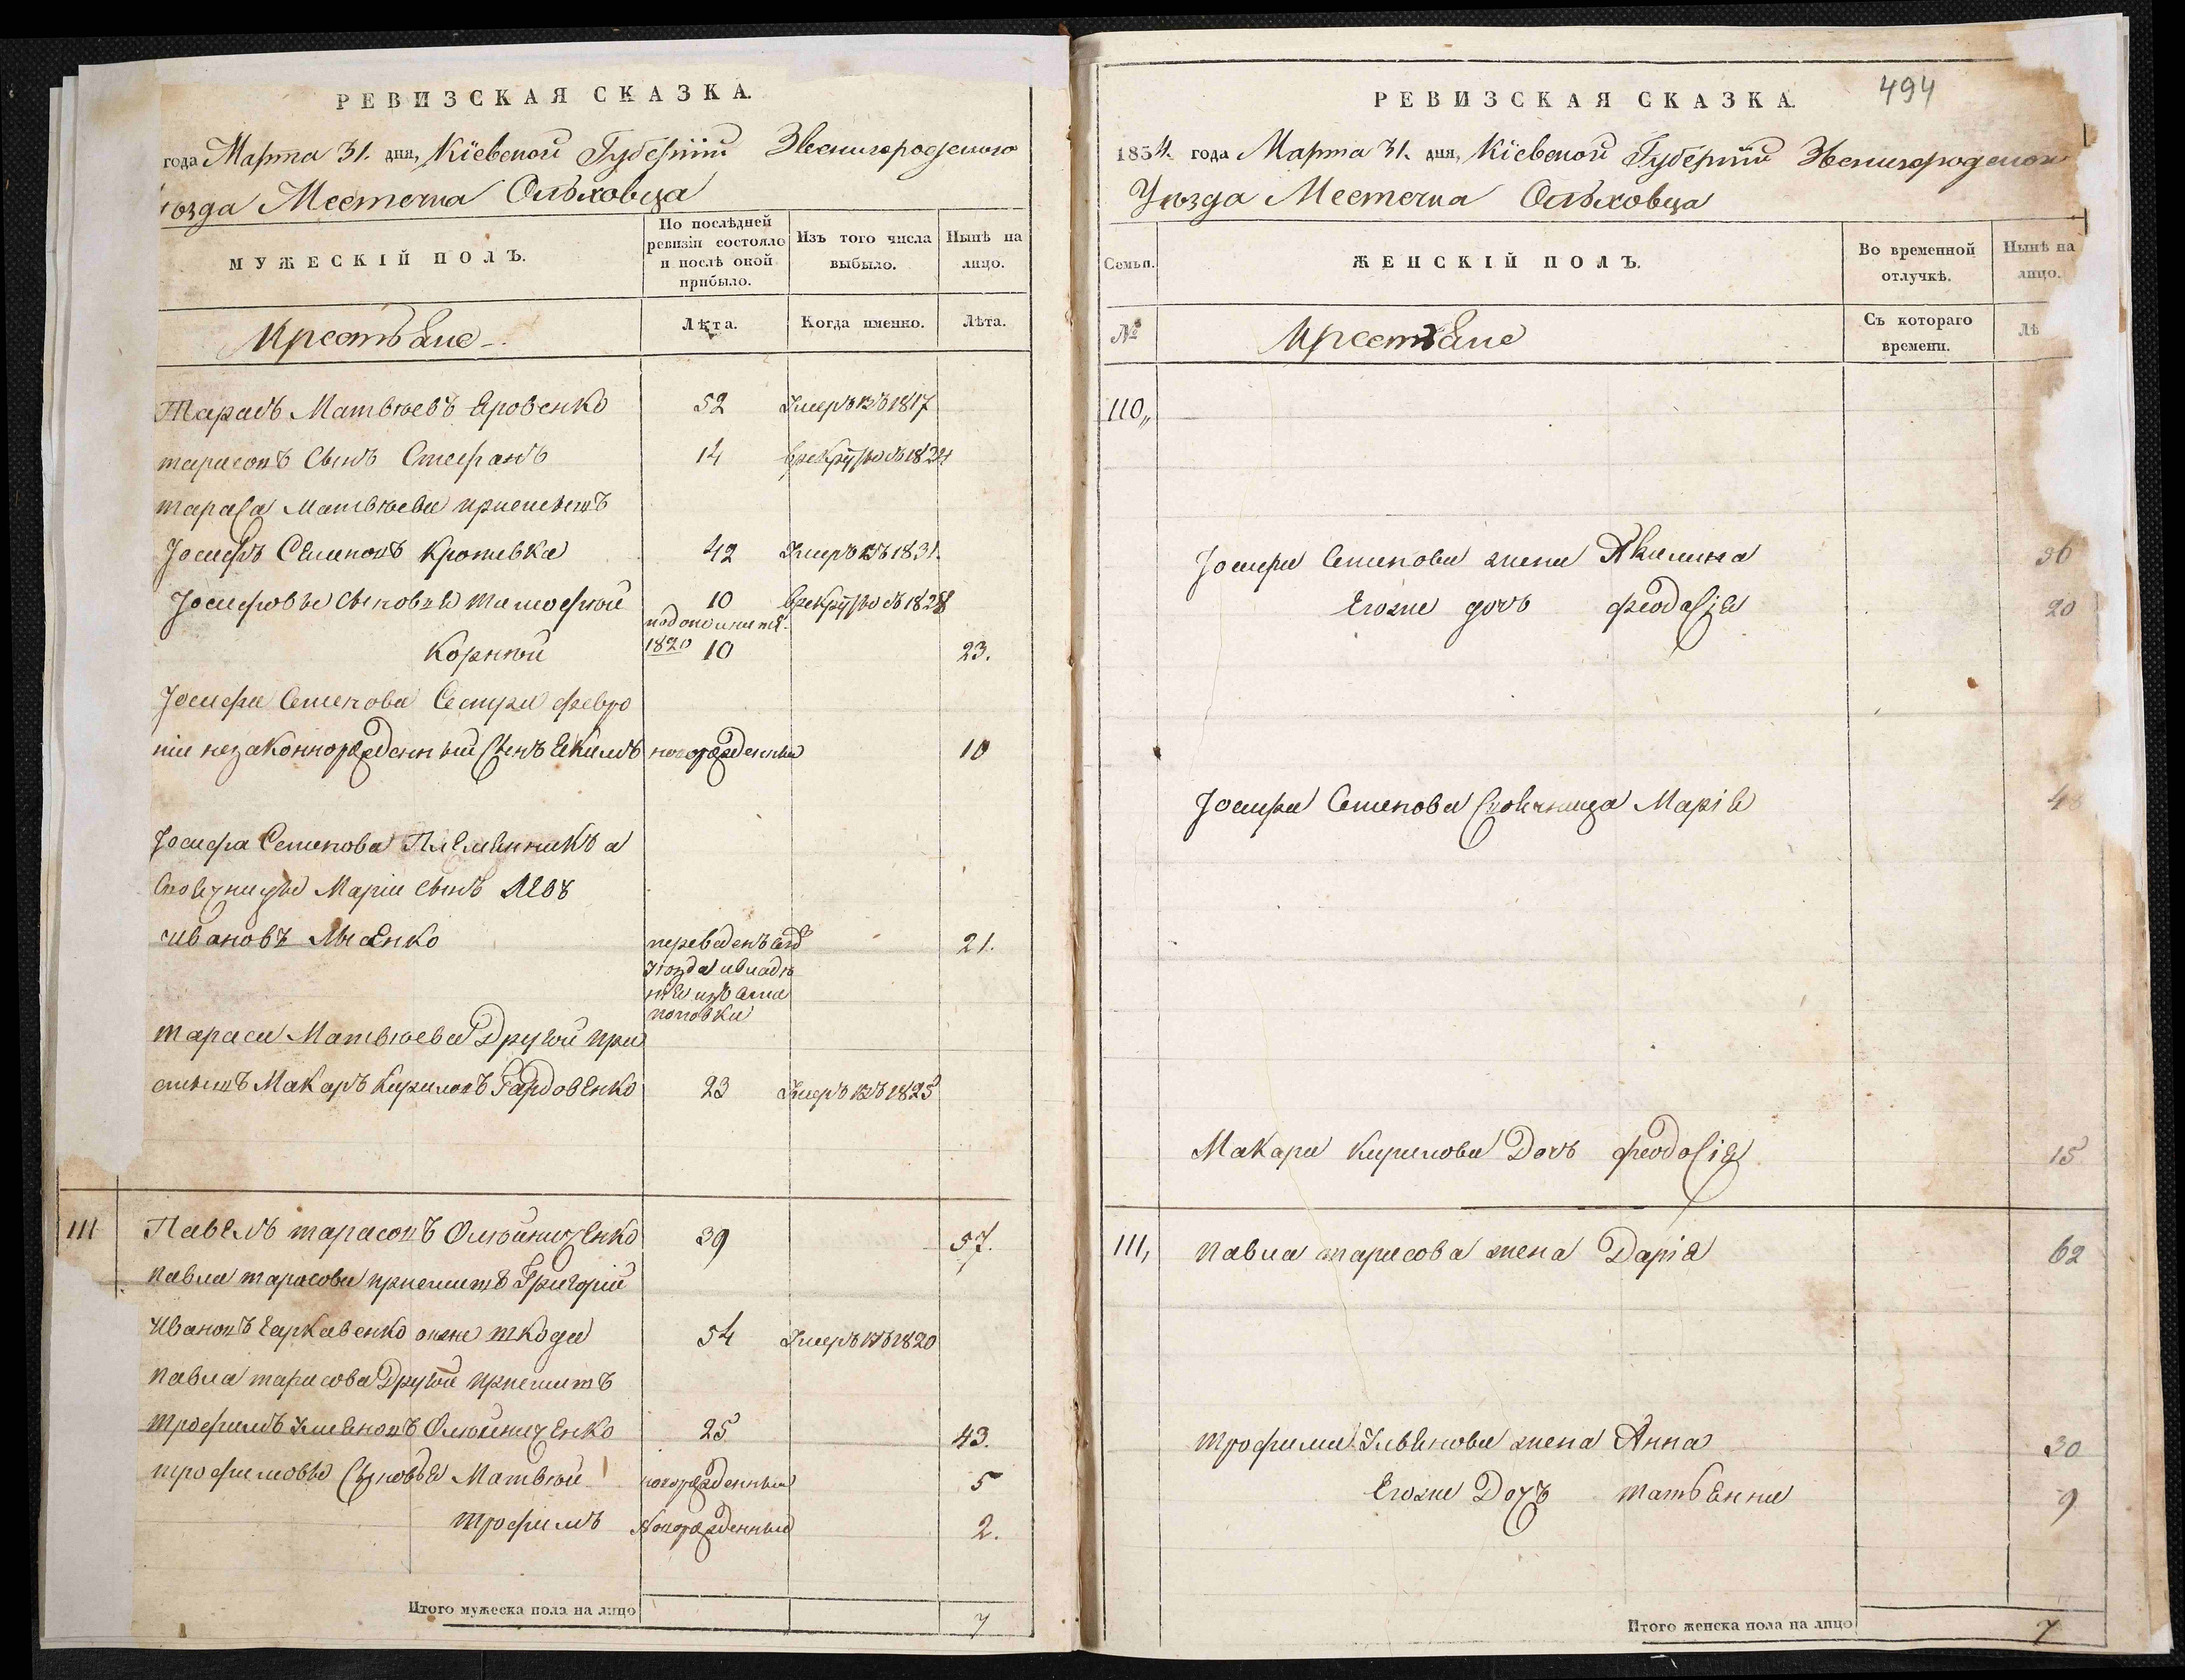 РЕВИЗСКАЯ СКАЗКА.
года Марта 31. дня, Кіевской Губерніи Звенигородского
уѣзда Местечка Ольховца
МУЖЕСКІЙ ПОЛЪ.
По послѣдней ревизіи состояло и послѣ оной прибыло.
Изъ того числа выбыло.
Нынѣ на лицо.
Крестьяне
Лѣта.
Когда именно.
Лѣта.
Тарасъ Матвѣевъ Яровенко 52 Умеръ въ 1817
тарасовъ Сынъ Стефанъ 14 в рекруты въ 1824
тараса Матвѣева приемышъ
Іосифъ Семеновъ Кротевка 42 Умеръ въ 1831.
Іосифовы сыновья тимофѣй 10 в рекруты въ 1828
Корнѣй 1820 10 23.
Іосифа Семенова Сестры февро
ніи незаконнорожденный Сынъ Екимъ новорожденный 10
Іосифа Семенова Племянникъ а
Своячницы Маріи сынъ Левъ
ивановъ Лысенко переведенъ 21.
уѣзда
поповки
тараса Матвѣева Другой при
емышъ Макаръ Кириловъ Гардовенко 23 Умеръ въ 1825
111 Павелъ тарасовъ Олѣйниченко 39 57.
павла тарасова приемышъ Григорій
Ивановъ онже шкода 54 Умеръ въ 1820
павла тарасова Другой приемышъ
трофимъ Олѣйниченко 25 43.
трофимовы Сыновья Матвѣй новорожденный 5
трофимъ Новорожденный 2.
Итого мужеска пола на лицо 7
494
РЕВИЗСКАЯ СКАЗКА.
1834. года Марта 31. дня, Кіевской Губерніи Звенигородского
Уѣзда Местечка Ольховца
Семьи.
ЖЕНСКІЙ ПОЛЪ.
Во временной отлучкѣ.
Нынѣ на лицо.
№
Крестьяне
Съ котораго времени.
Лѣ
110,,
Іосифа Семенова жена Акилина 36
Егоже дочь феодосія 20
Іосифа Семенова Своячница Марія
Макара Кирилова Дочь феодосія 15
111, павла тарасова жена Дарія 62
трофима жена Анна 30
Егоже Дочь татьянна 9
Итого женска пола на лицо 7